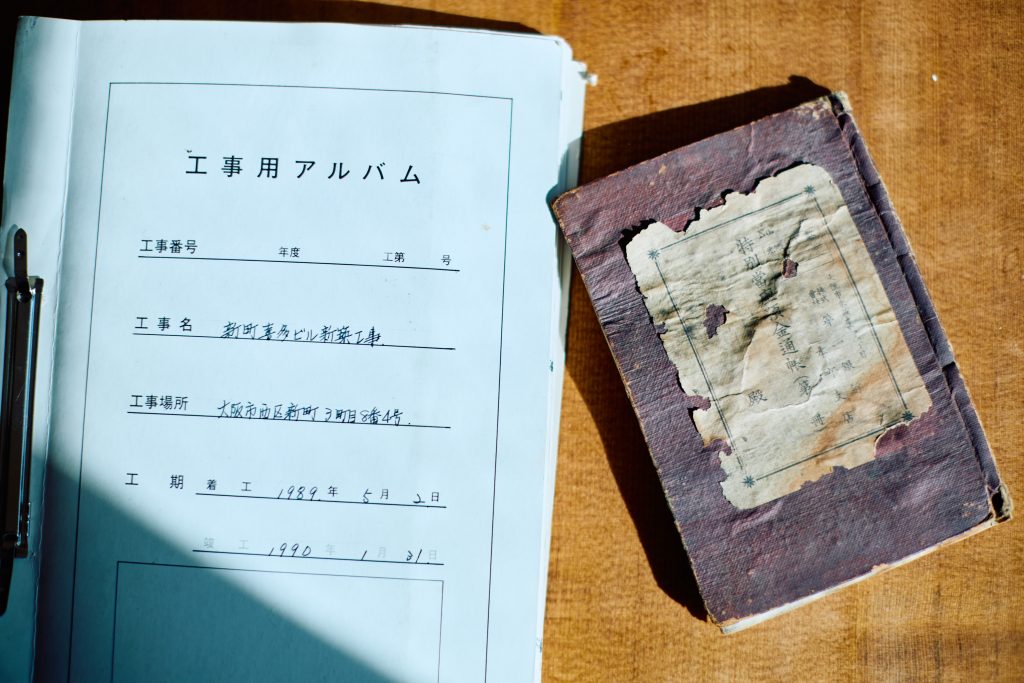 工事用アルバム
工事番号 年度 工第 号
工事名 新町喜多ビル新築工事
工事場所 大阪市西区新町3丁目8番4号.
工期 着工 1989年 5月 2日
竣工 1990年 1月 31日
特別當 金通帳(第
殿
支店